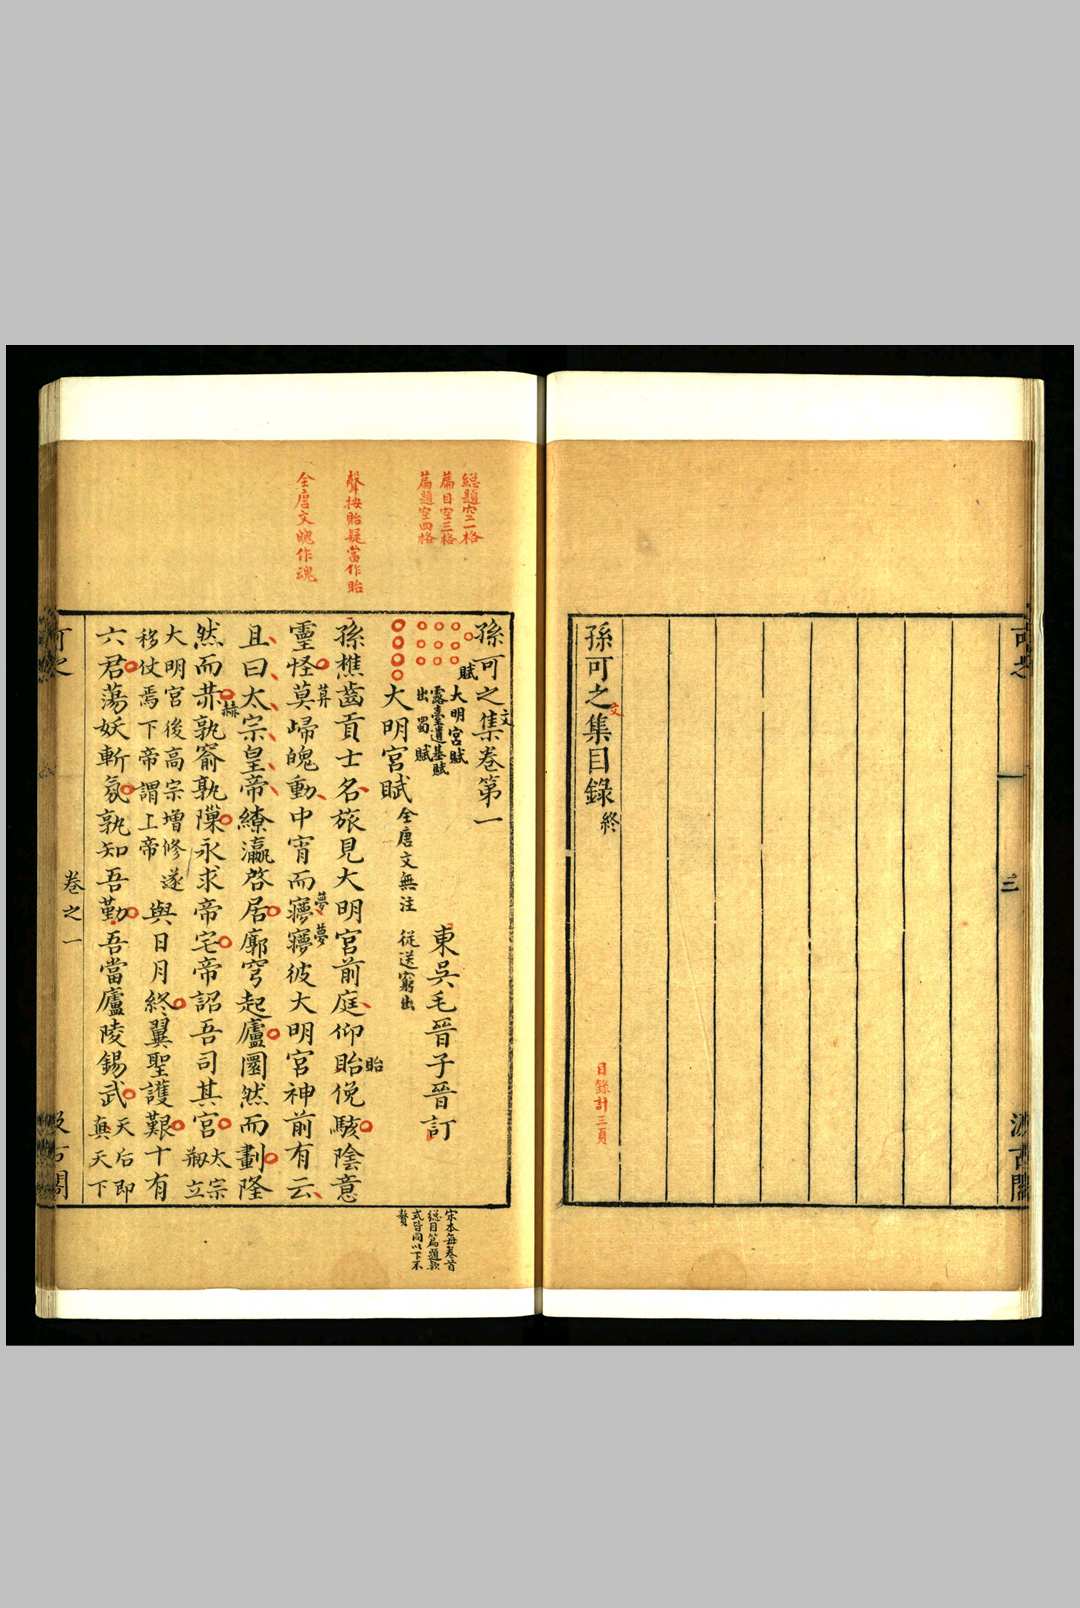 孫可之集目錄
文
終
目錄計三頁
三
總題空一格
篇目空三格
篇題空四格
聲按貽疑當作眙
全唐文魄作魂
孫可之集卷第一
文
賦
大明宮賦
露臺遺基賦
出蜀賦
東吳毛晉子晉訂
大明宮賦
全唐文無注
從送窮出
孫樵齒貢士名旅見大明宮前庭仰眙俛駭陰意
眙
靈怪莫歸魄動中宵而寱寱彼大明宮神前有云
夢夢
且曰太宗皇帝繚瀛啓居廓穹起廬圜然而劃隆
然而赤孰窬孰隟永求帝宅帝詔吾司其宮
赫
太宗
剏立
大明宮後高宗增修遂
移仗焉下帝謂上帝
與日月終翼聖護艱十有
六君蕩妖斬氛孰知吾勤吾當廬陵錫武
天后即
真天下
卷之一
宋本每卷首
總目篇題款
式皆同以下不
贅